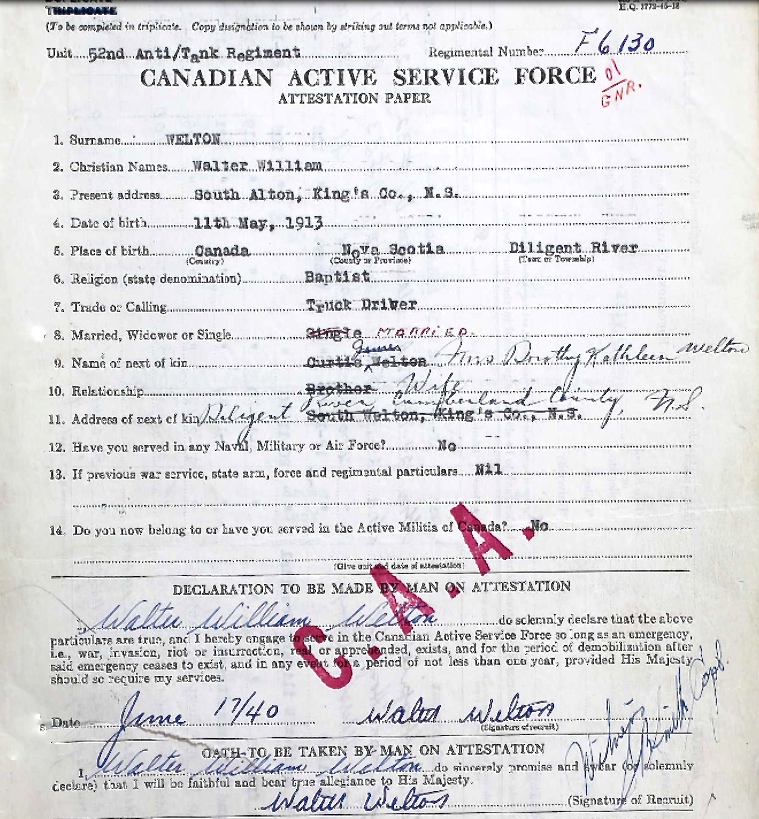 TRIPLICATE
H.Q. 1772-45-18
(To be completed in triplicate. Copy designation to be shown by striking out terms not applicable.)
Unit 52nd Anti/Tank Regiment Regimental Number F6130
CANADIAN ACTIVE SERVICE FORCE
01
GNR.
ATTESTATION PAPER
1. Surname WELTON
2. Christian Names Walter William
3. Present address South Alton, King's Co., N.S.
4. Date of birth 11th May, 1913
5. Place of birth Canada Nova Scotia Diligent River
(Country) (County or Province) (Town or Township)
6. Religion (state denomination) Baptist
7. Trade or Calling Truck Driver
8. Married, Widower or Single Single MARRIED.
9. Name of next of kin Curtis James Welton Mrs Dorothy Kathleen Welton
10. Relationship Brother Wife
11. Address of next of kin Diligent River Cumberland County, N.S. South Welton, King's Co., N.S.
12. Have you served in any Naval, Military or Air Force? No
13. If previous war service, state arm, force and regimental particulars Nil
14. Do you now belong to or have you served in the Active Militia of Canada? No
(Give unit and date of attestation)
C.A.A.
DECLARATION TO BE MADE BY MAN ON ATTESTATION
I, Walter William Welton do solemnly declare that the above
particulars are true, and I hereby engage to serve in the Canadian Active Service Force so long as an emergency,
i.e., war, invasion, riot or insurrection, real or apprehended, exists, and for the period of demobilization after
said emergency ceases to exist, and in any event for a period of not less than one year, provided His Majesty
should so require my services.
Date June 17/40 Walter Welton
(Signature of recruit)
OATH TO BE TAKEN BY MAN ON ATTESTATION
I, Walter William Welton do sincerely promise and swear (or solemnly
declare) that I will be faithful and bear true allegiance to His Majesty.
Walter Welton (Signature of Recruit)
Capt.